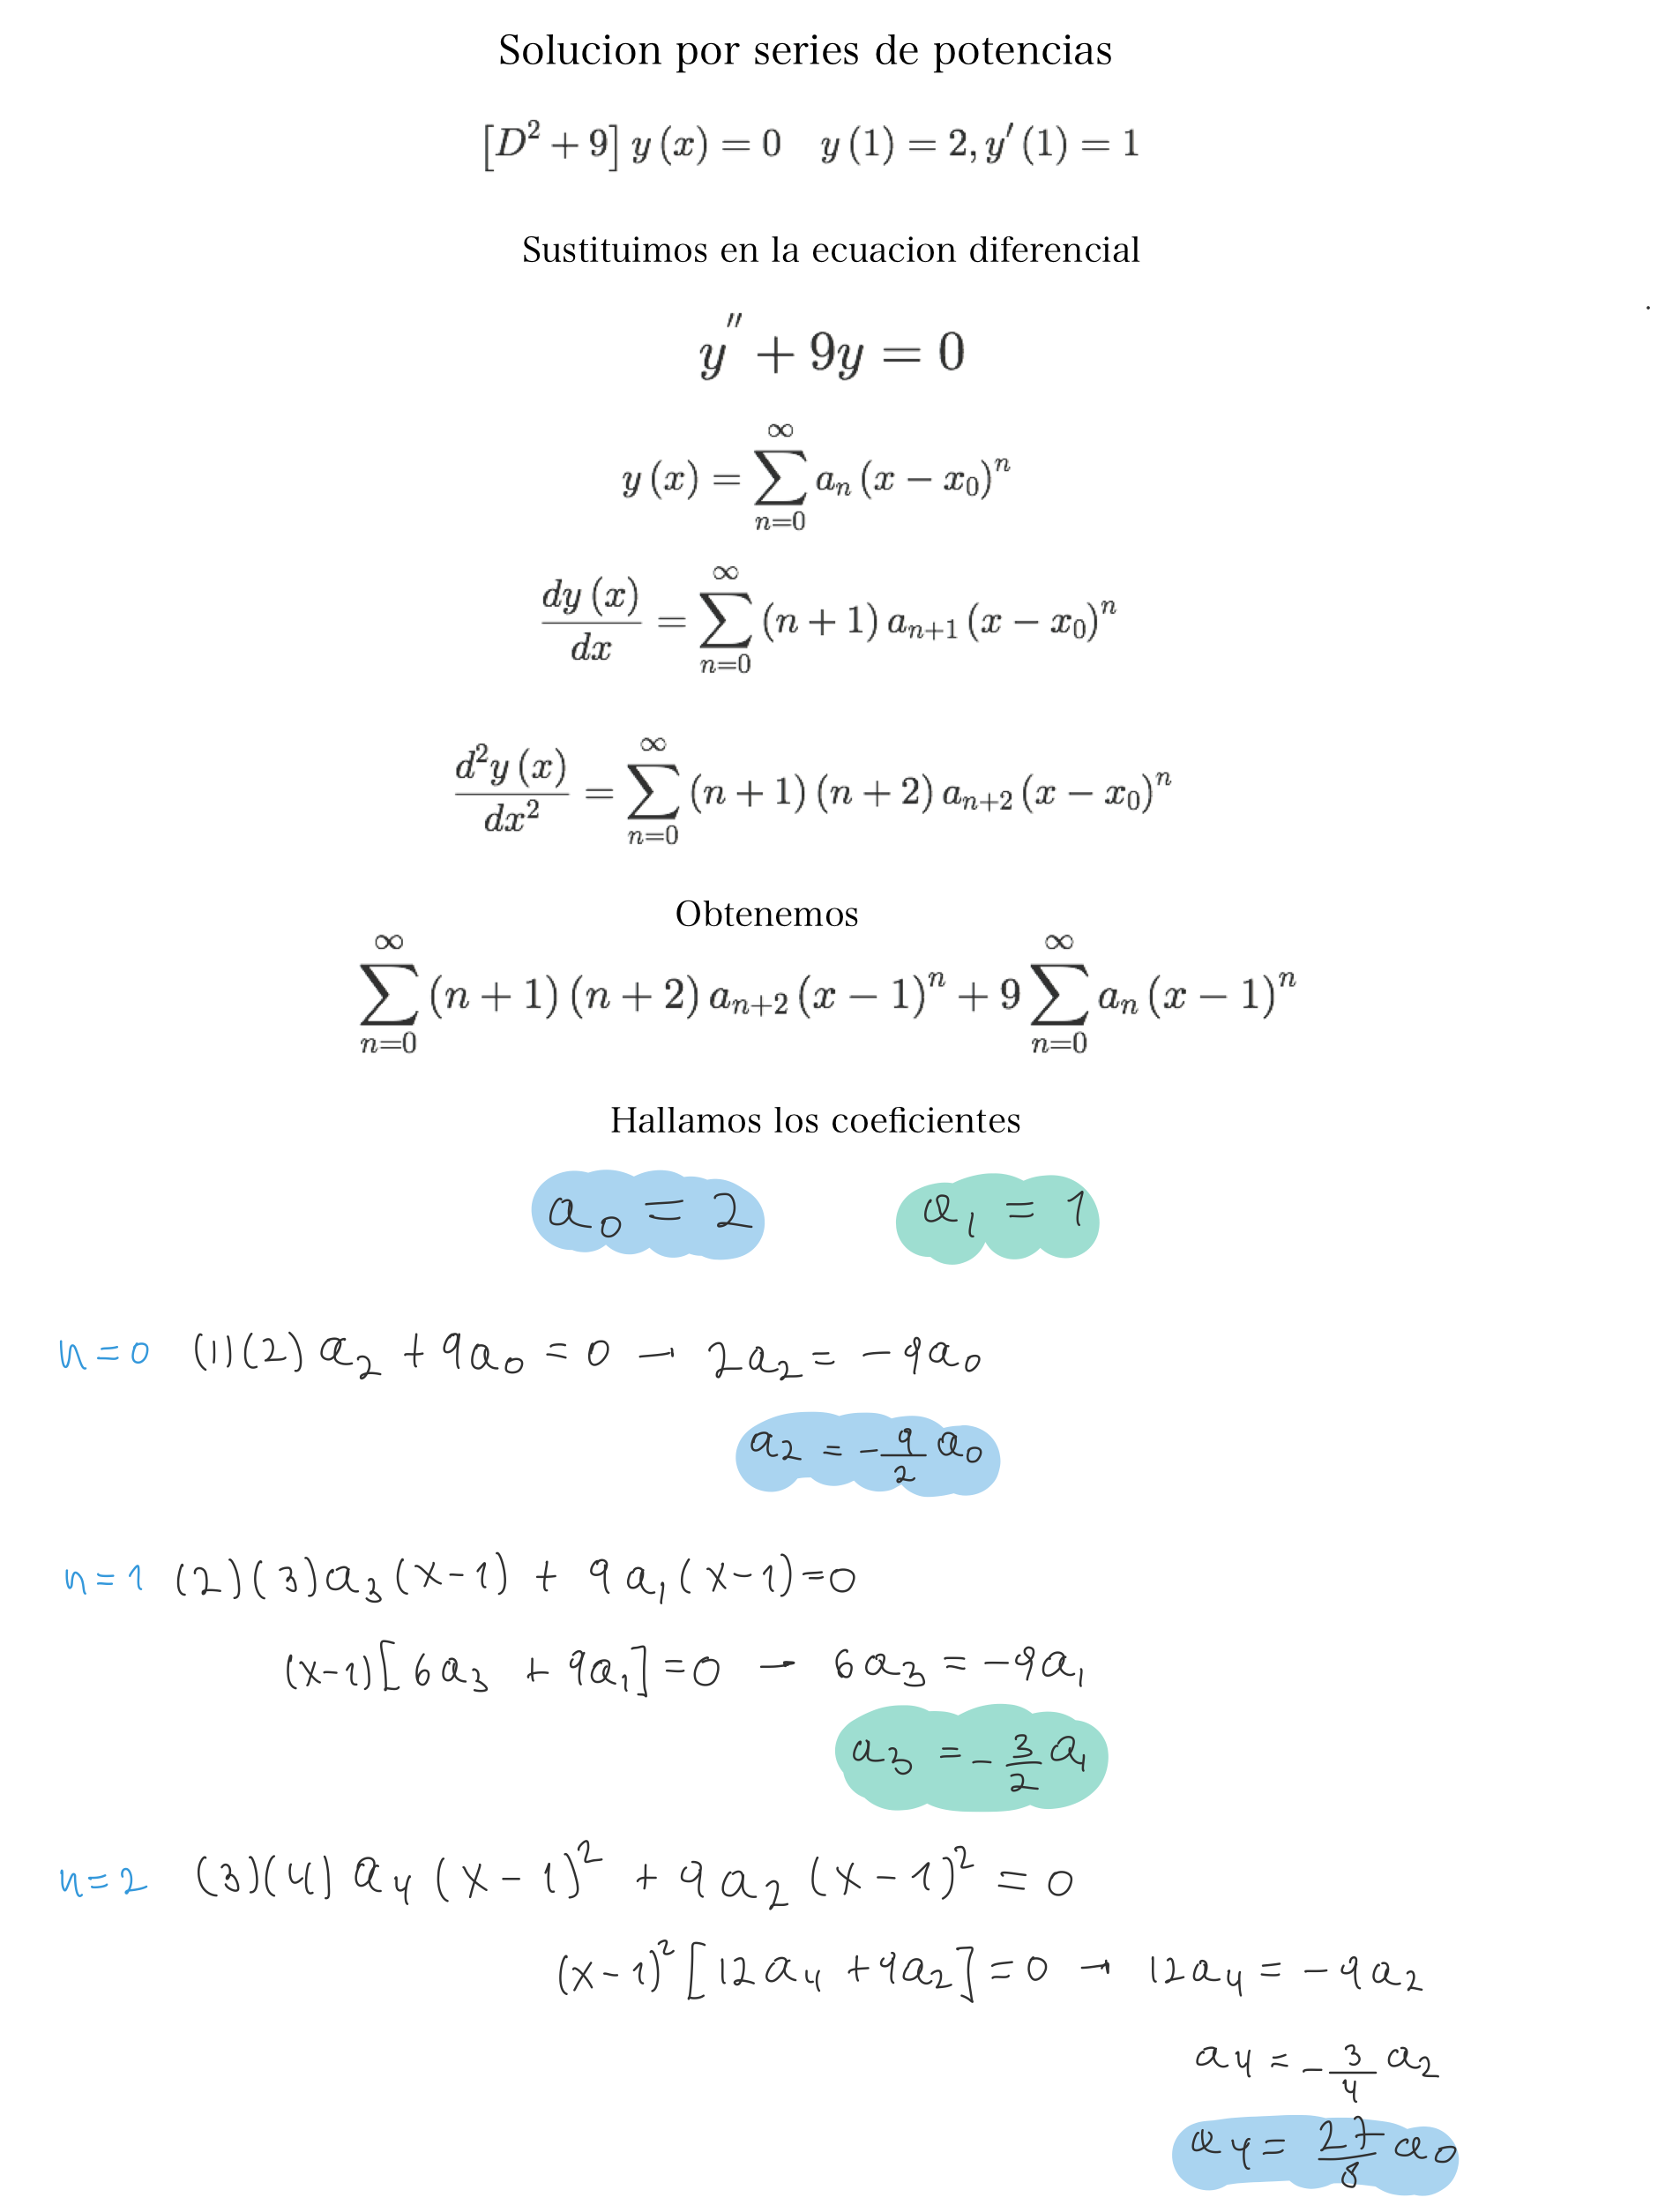 Solucion por series de potencias
[D² + 9] y (x) = 0   y (1) = 2, y′ (1) = 1
Sustituimos en la ecuacion diferencial
y″ + 9y = 0
y (x) = ∑_{n=0}^{∞} aₙ (x − x₀)ⁿ
dy (x)/dx = ∑_{n=0}^{∞} (n + 1) aₙ₊₁ (x − x₀)ⁿ
d²y (x)/dx² = ∑_{n=0}^{∞} (n + 1) (n + 2) aₙ₊₂ (x − x₀)ⁿ
Obtenemos
∑_{n=0}^{∞} (n + 1) (n + 2) aₙ₊₂ (x − 1)ⁿ + 9 ∑_{n=0}^{∞} aₙ (x − 1)ⁿ
Hallamos los coeficientes
a₀ = 2   a₁ = 1
n=0 (1)(2) a₂ + 9a₀ = 0 → 2a₂ = −9a₀
a₂ = −9/2 a₀
n=1 (2)(3)a₃(x−1) + 9a₁(x−1)=0
(x−1)[6a₃ + 9a₁]=0 → 6a₃ = −9a₁
a₃ = −3/2 a₁
n=2 (3)(4) a₄ (x−1)² + 9a₂ (x−1)² = 0
(x−1)² [12a₄ + 9a₂] = 0 → 12a₄ = −9a₂
a₄ = −3/4 a₂
a₄ = 27/8 a₀